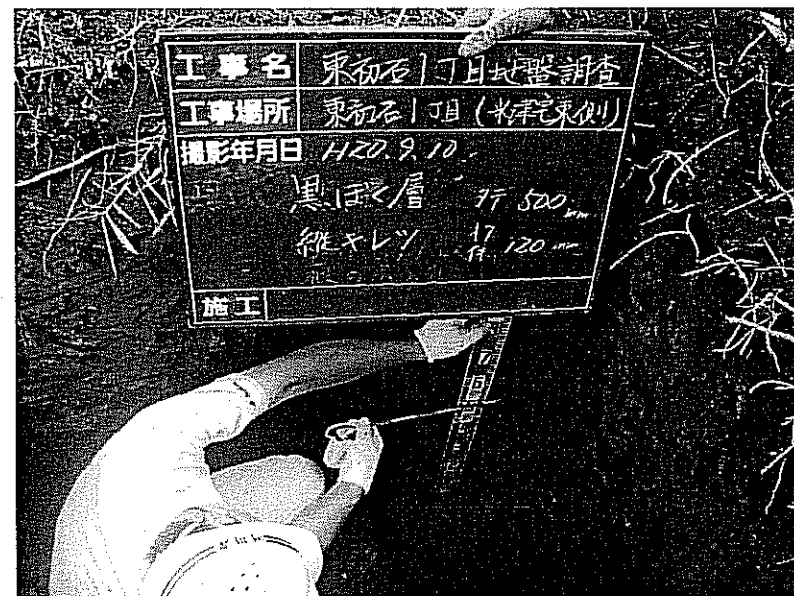 工事名 東初石1丁目地盤調査
工事場所 東初石1丁目(米津宅東側)
撮影年月日 H20.9.10.
黒ぼく層 行 500mm
縦キレツ 120mm
施工